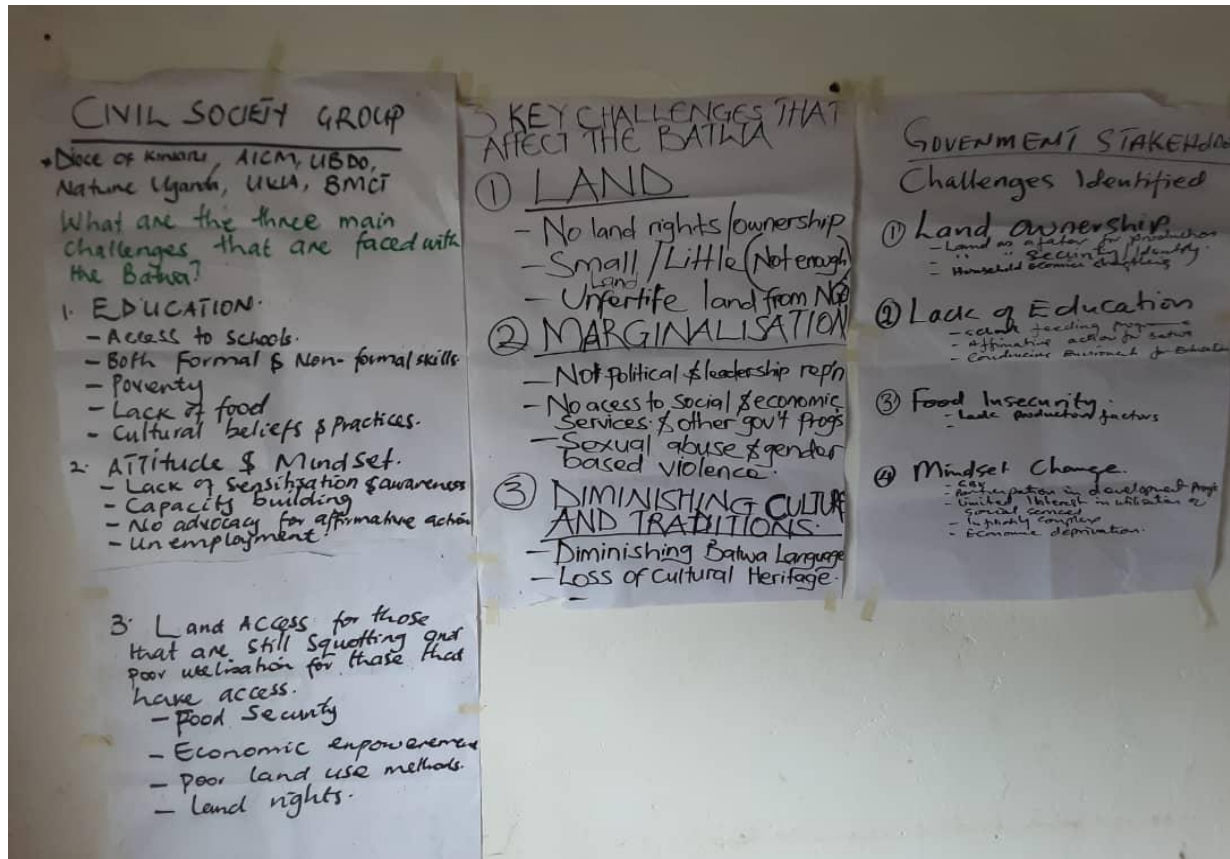 CIVIL SOCIETY GROUP
Dioce of Kinkiizi, AICM, UBDO,
Nature Uganda, UWA, BMCT
What are the three main
challenges that are faced with
the Batwa?
1. EDUCATION.
- Access to schools.
- Both Formal & Non-formal skills
- Poverty
- Lack of food
- Cultural beliefs & Practices.
2. ATTITUDE & Mindset.
- Lack of Sensitisation & awareness
- Capacity building
- No advocacy for affirmative action
- Unemployment
3. Land Access for those
that are still Squotting and
Poor utelisation for those that
have access.
- Food Security
- Economic enpowerement
- Poor land use methods.
- Land rights.
3 KEY CHALLENGES THAT
AFFECT THE BATWA
① LAND
- No land rights/ownership
- Small/Little (Not enough)
Land
- Unfertife land from NGO
② MARGINALISATION
- Not political & leadership rep'n
- No acess to social & economic
services & other gov't Progs
- Sexual abuse & gender
based violence.
③ DIMINISHING CULTURE
AND TRADITIONS.
- Diminishing Batwa Language
- Loss of Cultural Heritage.
-
GOVENMENT STAKEHOLD
Challenges Identified
① Land ownership
- Land as a fator for production
- " " " security/Identity.
- Household Economics
② Lack of Education
- feeding
- Affirmative action for batwa
- Conducive for Education
③ Food Insecurity.
- Lack production factors
④ Mindset Change.
- Participation in development Prog's
- Limited Interest in utilisation of
social services
- complex
- Economic deprivation.